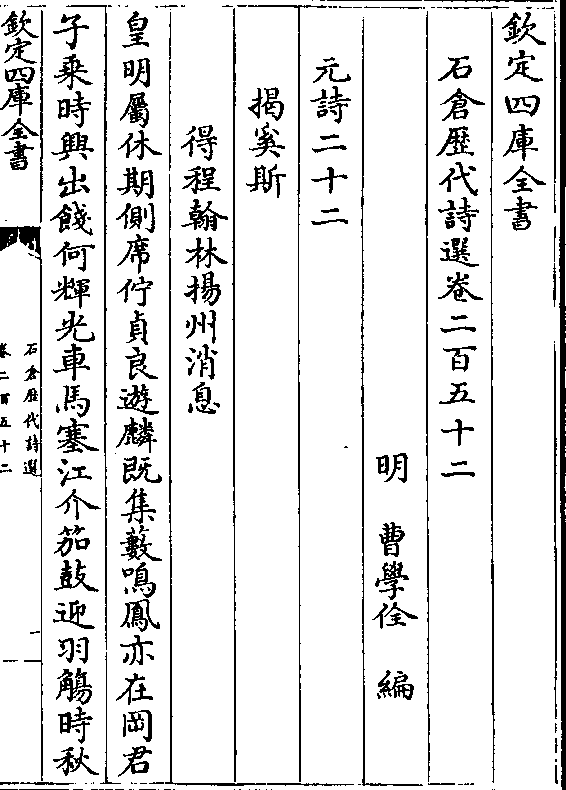 欽定四庫全書
石倉歷代詩選卷二百五十二
明 曹學佺 編
元詩二十二
揭奚斯
得程翰林揚州消息
皇明屬休期側席佇貞良遊麟既集藪鳴鳳亦在岡君
子乘時興出餞何輝光車馬塞江介笳鼓迎羽觴時秋
欽定四庫全書
石倉歷代詩選
卷二百五十二
一